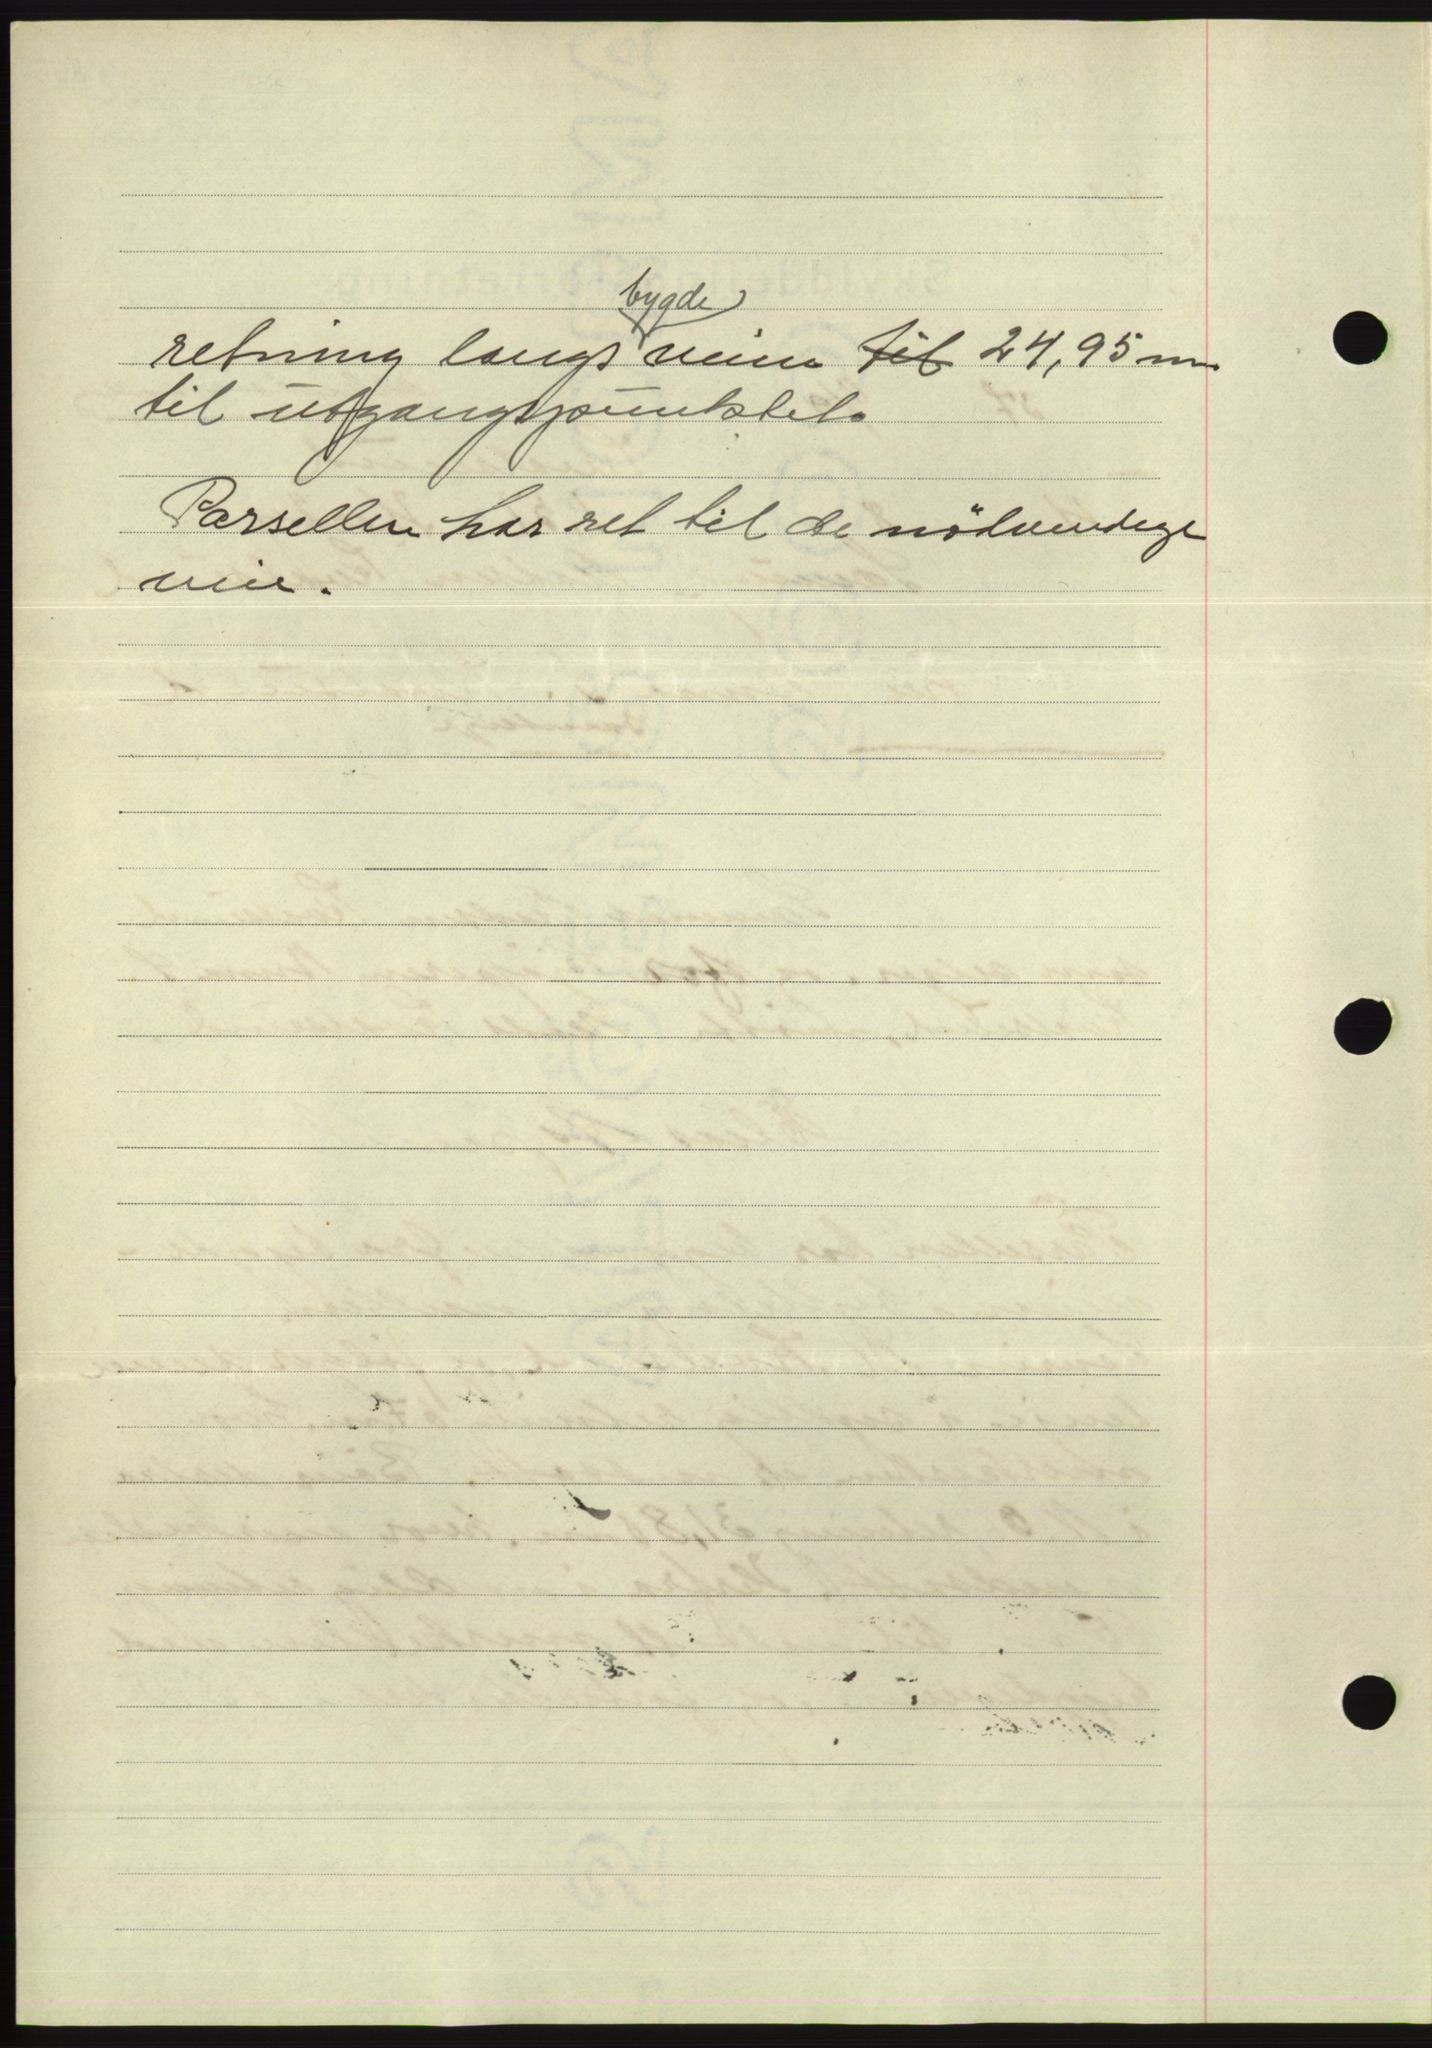 retning langs bygdeveien til 24,95 m
til utgangspunktet.
Parsellen har ret til de nödvendige
veie.